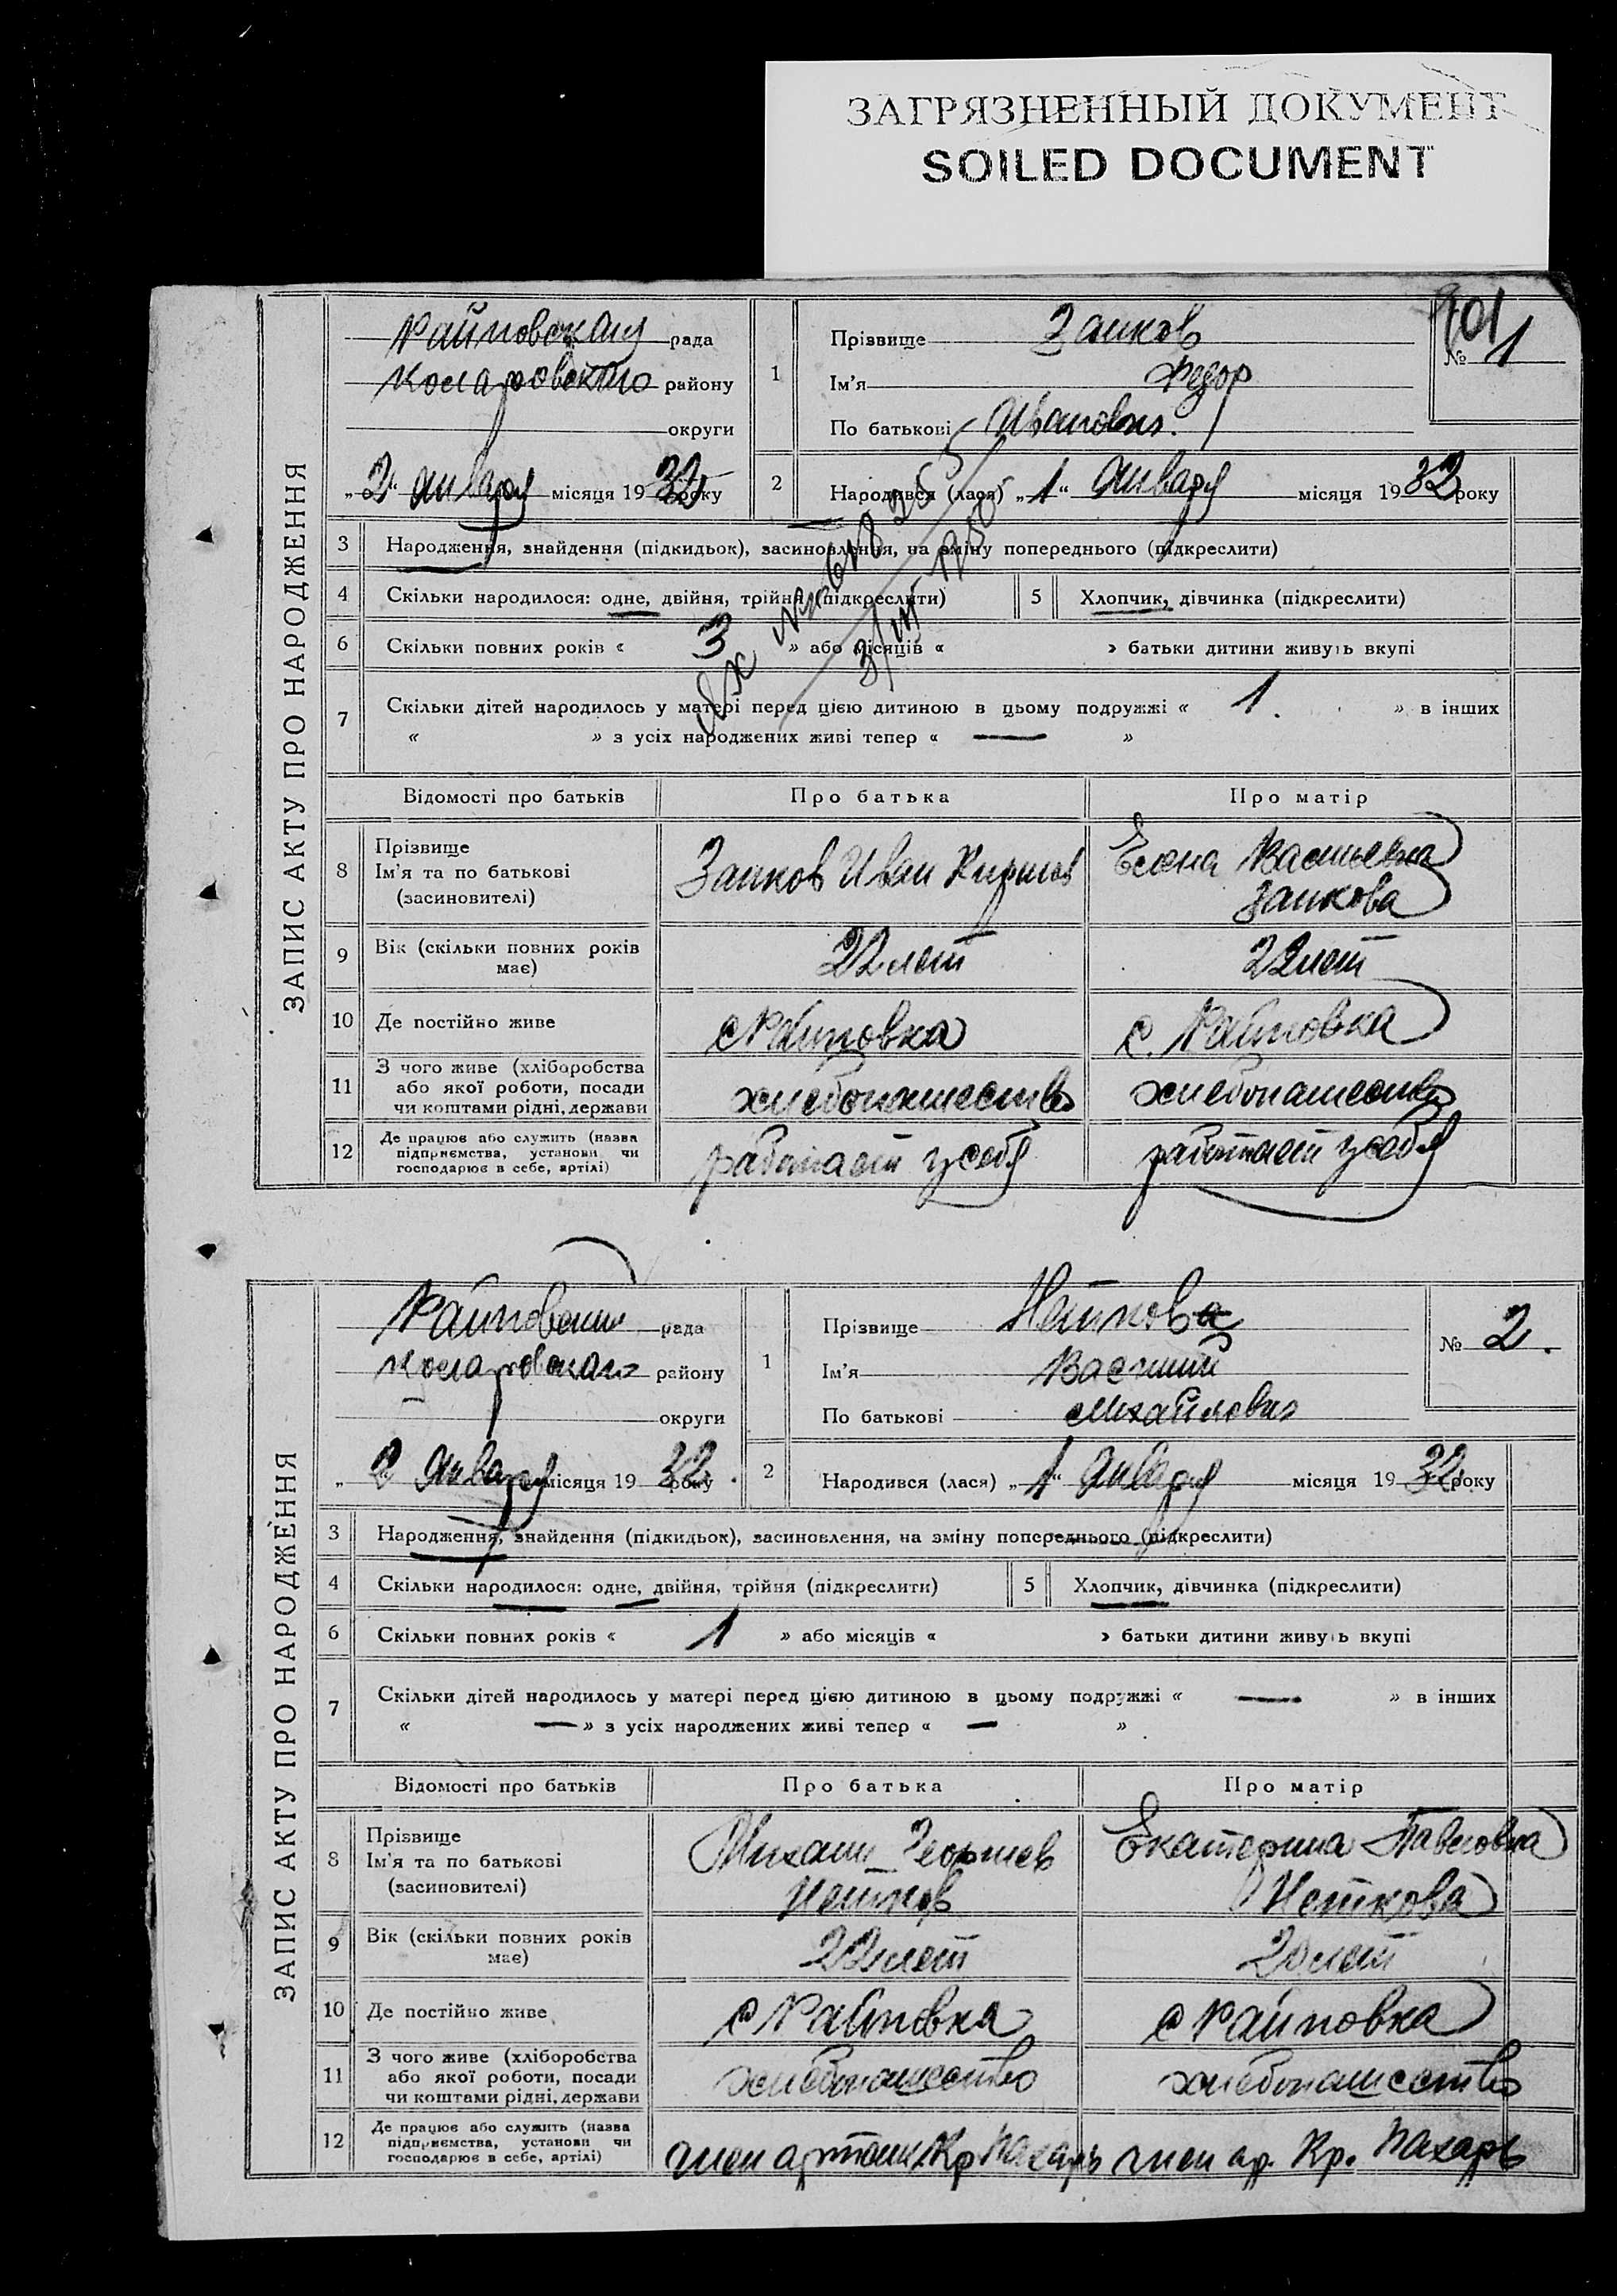 ЗАГРЯЗНЕННЫЙ ДОКУМЕНТ
SOILED DOCUMENT
ЗАПИС АКТУ ПРО НАРОДЖЕННЯ
рада
району
округи
„2“ января місяця 1932 року
1
Прізвище
Ім'я Федор
По батькові Иванович.
101
№ 1
2
Народився (лася) „1“ января місяця 1932 року
3 Народження, знайдення (підкидьок), засиновлення, на зміну попереднього (підкреслити)
4 Скільки народилося: одне, двійня, трійня (підкреслити) 5 Хлопчик, дівчинка (підкреслити)
6 Скільки повних років « 3 » або місяців « » батьки дитини живуть вкупі
7 Скільки дітей народилось у матері перед цією дитиною в цьому подружжі « 1. » в інших
« » з усіх народжених живі тепер « — »
Відомості про батьків Про батька Про матір
8 Прізвище
Ім'я та по батькові
(засиновителі)
Иван
Елена Васильевна
9 Вік (скільки повних років має) 22 лет 22 лет
10 Де постійно живе с Райновка с. Райновка
11 З чого живе (хліборобства або якої роботи, посади чи коштами рідні, держави хлебопашество хлебопашество
12 Де працює або служить (назва підприємства, установи чи господарює в себе, артілі) работает у себя работает у себя
ЗАПИС АКТУ ПРО НАРОДЖЕННЯ
рада
району
округи
„2 января місяця 1932 року.
1
Прізвище Нейкова
Ім'я Василий
По батькові Михайлович
№ 2.
2
Народився (лася) „1“ января місяця 1932 року
3 Народження, знайдення (підкидьок), засиновлення, на зміну попереднього (підкреслити)
4 Скільки народилося: одне, двійня, трійня (підкреслити) 5 Хлопчик, дівчинка (підкреслити)
6 Скільки повних років « 1 » або місяців « » батьки дитини живуть вкупі
7 Скільки дітей народилось у матері перед цією дитиною в цьому подружжі « — » в інших
« — » з усіх народжених живі тепер « — »
Відомості про батьків Про батька Про матір
8 Прізвище
Ім'я та по батькові
(засиновителі)
Михаил Георгиев
Нейков
Екатерина Павловна
Нейкова
9 Вік (скільки повних років має) 22 лет 20 лет
10 Де постійно живе с Райновка с Райновка
11 З чого живе (хліборобства або якої роботи, посади чи коштами рідні, держави хлебопашество хлебопашество
12 Де працює або служить (назва підприємства, установи чи господарює в себе, артілі) член артели Кр Пахарь член ар. Кр. Пахарь